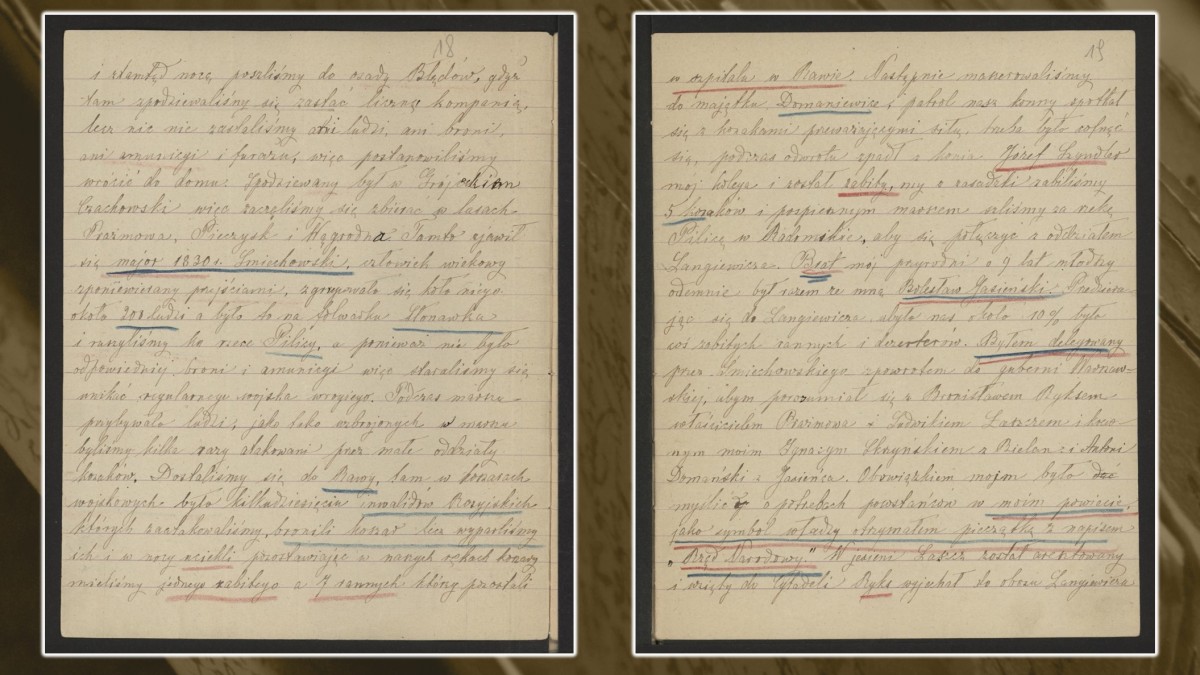 18
i stamtąd nocą poszliśmy do osady Błędów, gdyż
tam spodziewaliśmy się zastać liczną kompanią,
lecz nic nie zastaliśmy ani ludzi, ani broni,
ani amunicyi i furażu, więc postanowiliśmy
wrócić do domu. Spodziewany był w Grójeckiem
Czachowski więc zaczęliśmy się zbierać w lasach
Prażmowa, Pieczysk i Hągrodna. Tamto zjawił
się major 1830 r. Śmiechowski, człowiek wiekowy
sponiewierany przejściami, zgrupowało się koło niego
około 200 ludzi a było to na folwarku Słonawka
i ruszyliśmy ku rzece Pilicy, a ponieważ nie było
odpowiedniej broni i amunicyi więc staraliśmy się
unikać regularnego wojska wrogiego. Podczas marszu
przybywało ludzi, jako tako uzbrojonych w marszu
byliśmy kilka razy atakowani przez małe oddziały
kozaków. Dostaliśmy się do Rawy, tam w koszarach
wojskowych było kilkadziesięciu inwalidów Rosyjskich
których zaatakowaliśmy, bronili koszar lecz wyparliśmy
ich i w nocy uciekli pozostawiając w naszych rękach koszary
mieliśmy jednego zabitego a 7 rannych którzy pozostali
19
w szpitalu w Rawie. Następnie maszerowaliśmy
do majątku Domaniewice, patrol nasz konny spotkał
się z kozakami przeważającymi siłą, trzeba było cofnąć
się, podczas odwrotu spadł z konia Józef Szyndler
mój kolega i został zabity, my z zasadzki zabiliśmy
5 kozaków i pospiesznym marszem szliśmy za rzekę
Pilicę w Radomskie, aby się połączyć z oddziałem
Langiewicza. Brat mój przyrodni o 9 lat młodszy
odemnie był razem ze mną Bolesław Jasieński. Przedziera-
jąc się do Langiewicza ubyło nas około 10% było
coś zabitych rannych i dezerterów. Byłem delegowany
przez Śmiechowskiego zpowrotem do guberni Warszaw-
skiej, abym porozumiał się z Bronisławem Ryksem
właścicielem Prażmowa z Ludwikiem Laszczem i krew-
nym moim Ignacym Skrzyńskiem z Bielan i Antoni
Domański z Jasieńca. Obowiązkiem mojim było dać
myślić o potrzebach powstańców w moim powiecie,
jako symbol władzy otrzymałem pieczątkę z napisem
„Rząd Narodowy." W jesieni Laszcz został aresztowany
i wzięty do Cytadeli Ryks wyjechał do obozu Langiewicza